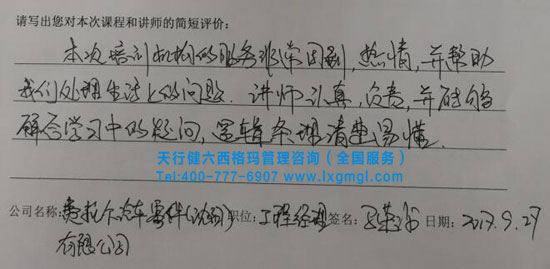 请写出您对本次课程和讲师的简短评价:
本次培训机构的服务非常周到,热情,并帮助
我们处理生活上的问题.讲师认真,负责,并能够
解答学习中的疑问,逻辑条理清楚易懂.
天行健六西格玛管理咨询(全国服务)
Tel:400-777-6907 www.lxgmgl.com
公司名称: 汽车零件 职位: 工程经理 签名: 日期: 2017.9.27
有限公司